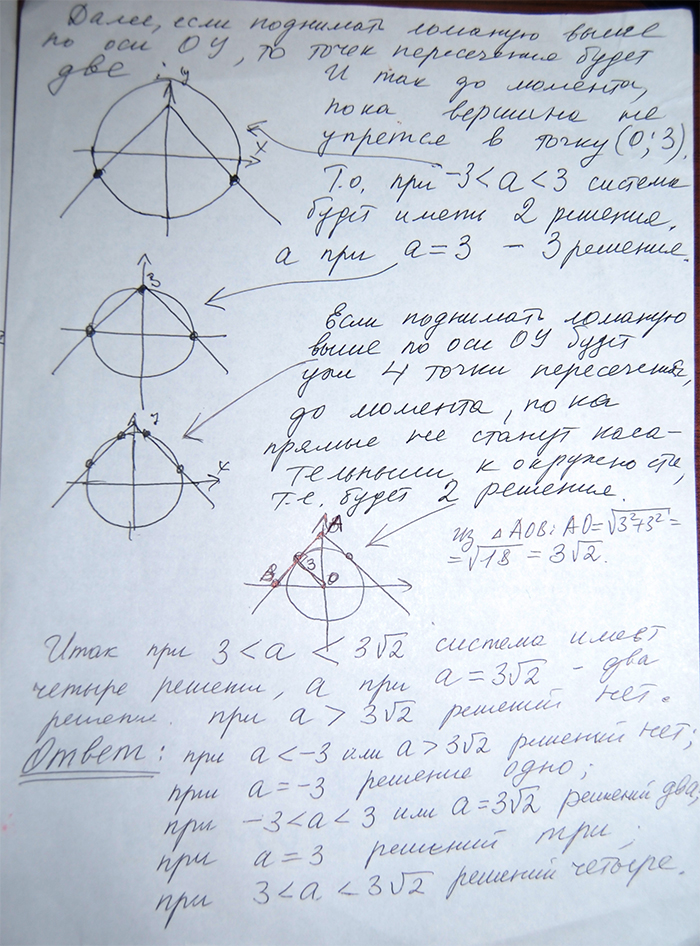 Далее, если поднимать ломаную выше
по оси ОУ, то точек пересечения будет
две
И так до момента,
пока вершина не
упрется в точку (0; 3).
Т.о, при -3 < a < 3 система
будет иметь 2 решения,
а при a = 3 - 3 решения.
y
x
3
Если поднимать ломаную
выше по оси ОУ будет
уже 4 точки пересечения,
до момента, пока
прямые не станут каса-
тельными к окружности,
т.е. будет 2 решения.
y
x
A
B
3
O
из △AOB: AO = √3²+3² =
= √18 = 3√2.
Итак при 3 < a < 3√2 система имеет
четыре решения, а при a = 3√2 - два
решения. при a > 3√2 решений нет.
Ответ: при a < -3 или a > 3√2 решений нет;
при a = -3 решение одно;
при -3 < a < 3 или a = 3√2 решений два;
при a = 3 решений три;
при 3 < a < 3√2 решений четыре.